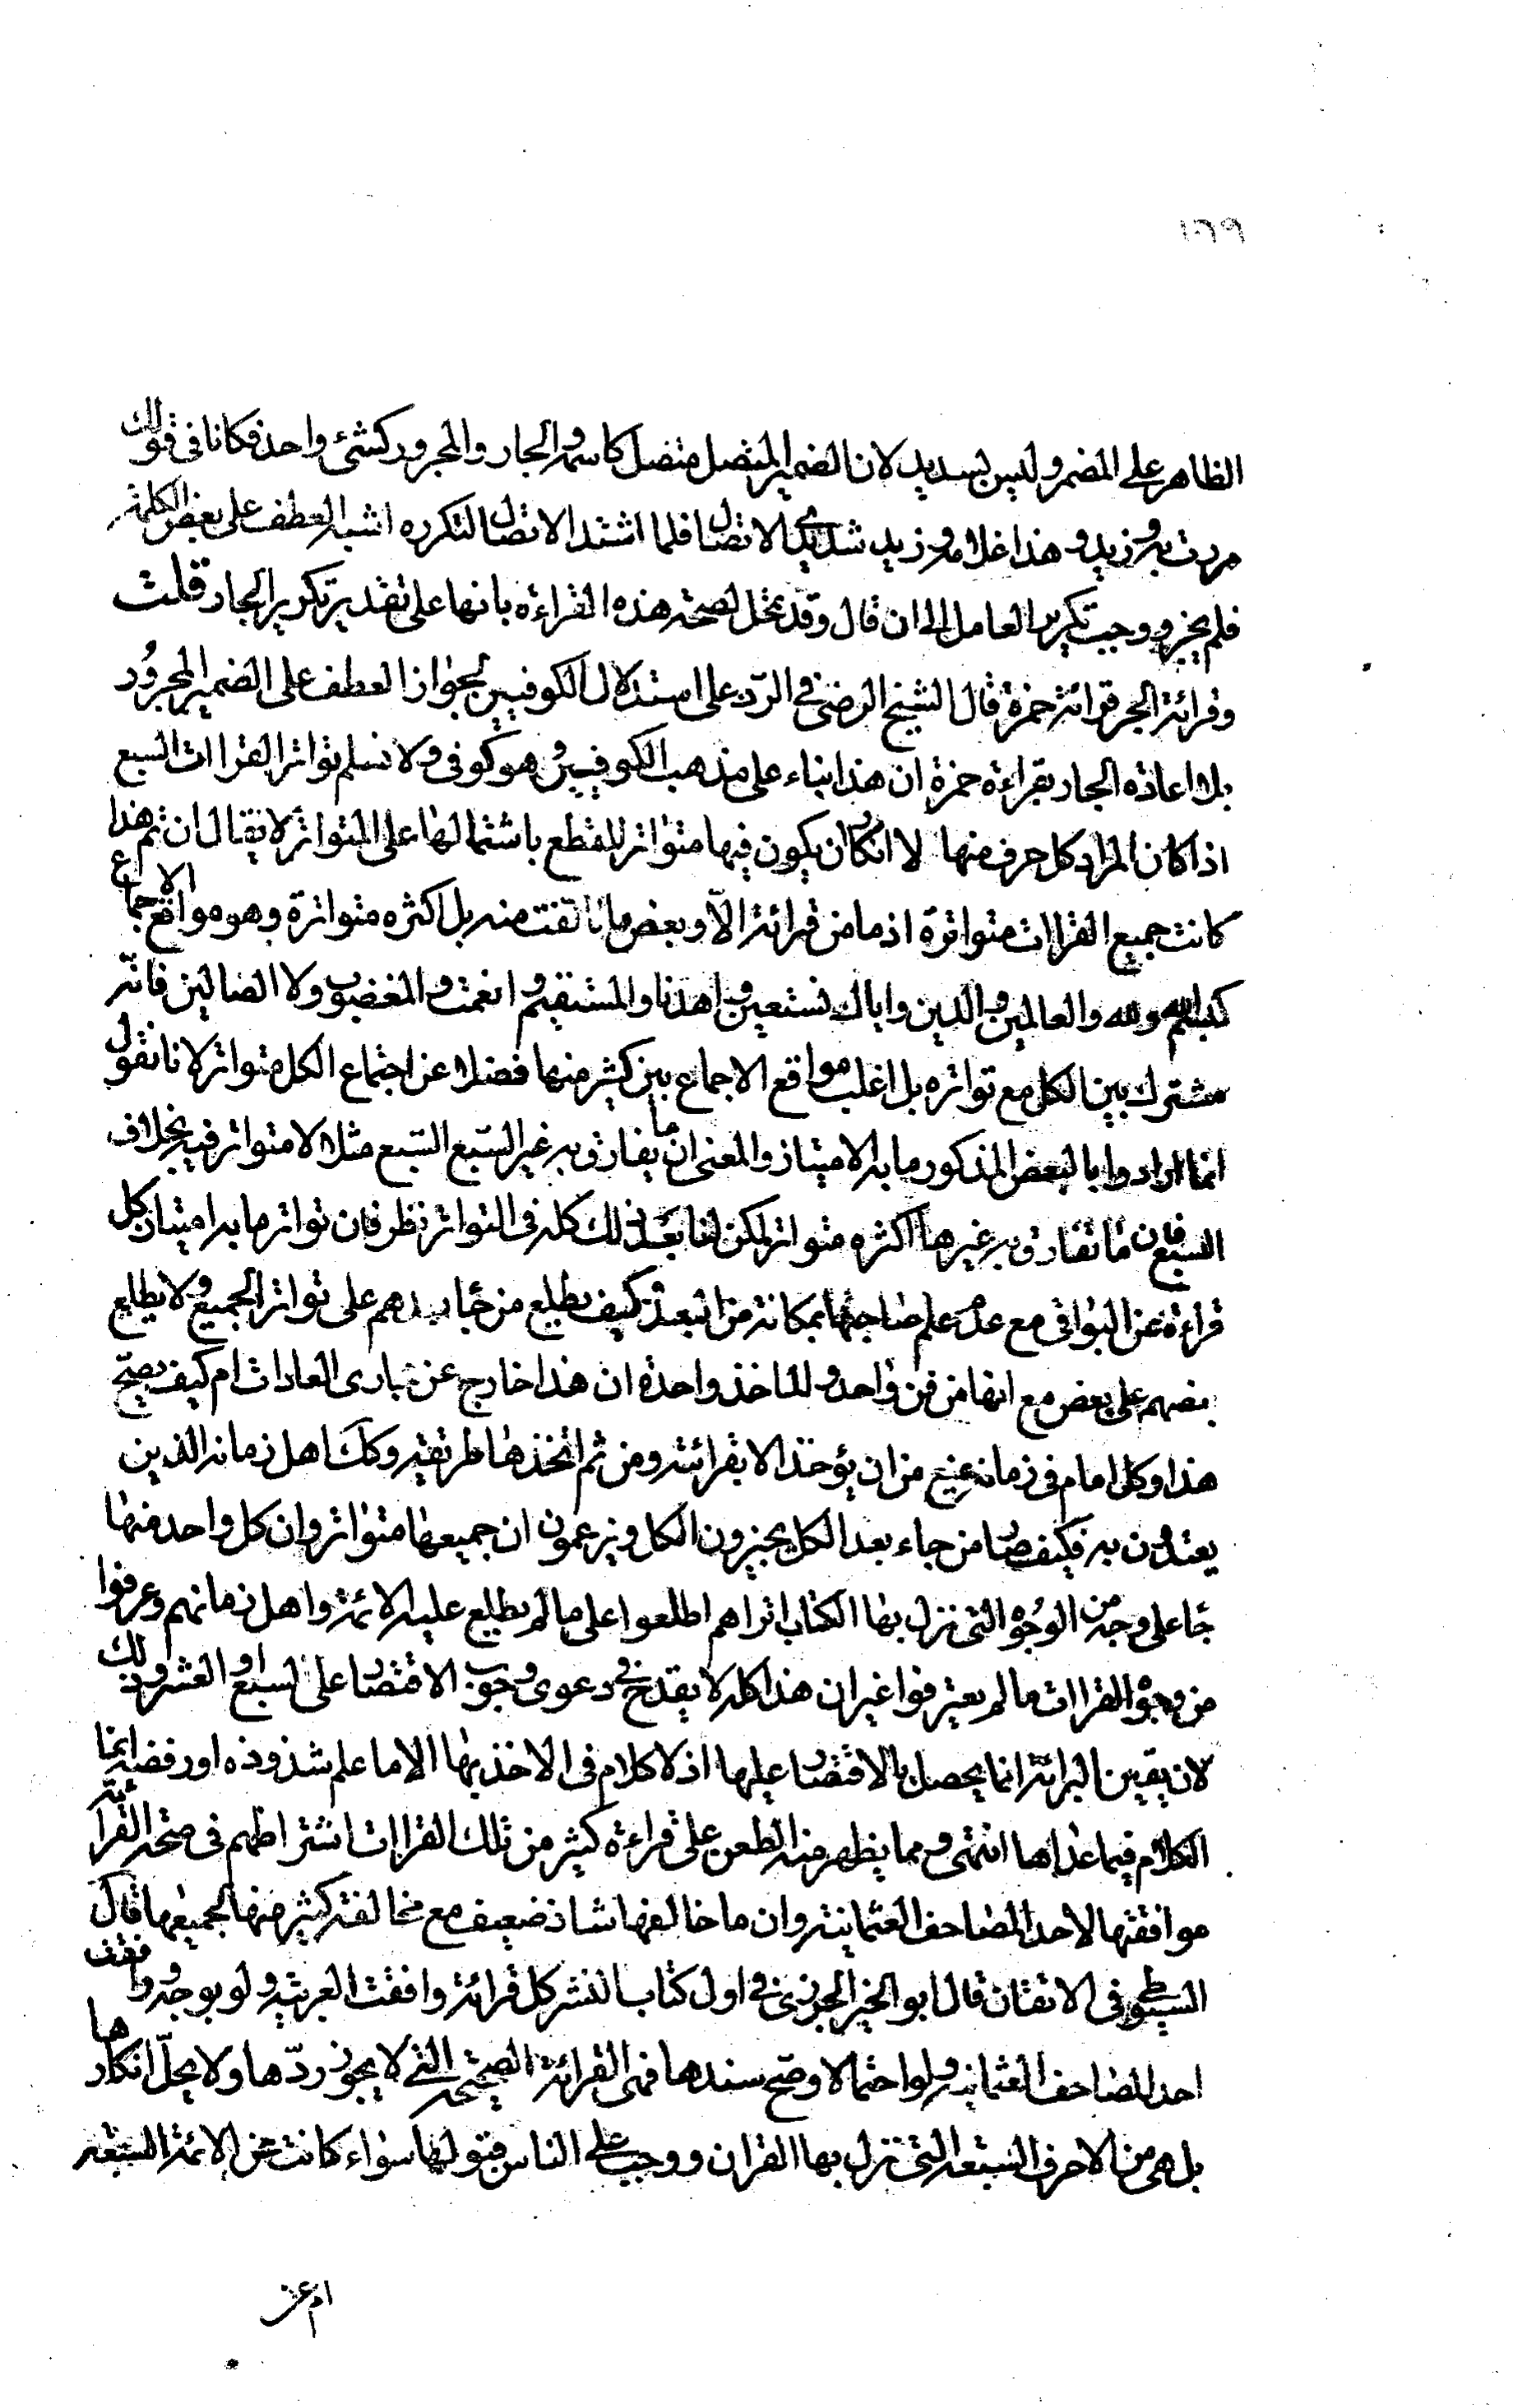 ١٦٩
الظاهر على المضمر وليس بسديد لان الضمير المتصل متصل كاسمه والجار والمجرور كشئ واحد فكانا فى قولك
مررت به وزيد وهذا غلامه وزيد شديدى الاتصال فلما اشتد الاتصال لتكرره اشبه العطف على بعض الكلمة
فلم يجز ووجب تكرير العامل الى ان قال وقد تمحل لصحة هذه القراءة بانها على تقدير تكرير الجار قلت
وقرائة الجر قرائة حمزة قال الشيخ الرضى فى الردّ على استدلال الكوفيين لجواز العطف على الضمير المجرور
بلا اعادة الجار بقراءة حمزة ان هذا بناء على مذهب الكوفيين وهو كوفى ولا نسلم تواتر القراات السبع
اذا كان المراد كل حرف منها لا انكار ان يكون فيها متواتر للقطع باشتمالها على المتواتر لا يقال ان تم هذا
كانت جميع القراات متواترة اذ ما من قرائة الاّ وبعض ما تالفت منه بل اكثره متواترة وهو مواقع الاجماع
كبسم الله ولله والعالمين والدين واياك نستعين واهدنا والمستقيم وانعمت والمغضوب ولا الضالين فانّه
مشترك بين الكل مع تواتره بل اغلب مواقع الاجماع بين كثير منها فضلا عن اجتماع الكل متواتر لانا نقول
انما ارادوا بالبعض المذكور ما به الامتياز والمعنى ان ما يفارق به غير السبع السبع مثلا لا متواتر فيه بخلاف
السبع فان ما تفارق به غيرها اكثره متواتر لكن لنا بعد ذلك كله فى التواتر نظر فان تواتر ما به امتياز كل
قراءة عن البواقى مع عدم علم صاحبها بمكانة من البعد وكيف يطلع من جاء بعدهم على تواتر الجميع ولا يطلع
بعضهم على بعض مع انها من فن واحد والماخذ واحدة ان هذا خارج عن مجارى العادات ام كيف يصح
هذا وكل امام فى زمانه يمنع من ان يؤخذ الا بقرائته ومن ثم اتخذها طريقة وكك اهل زمانه الذين
يعتدون به فكيف صار من جاء بعد الكل يجيزون الكل ويزعمون ان جميعها متواتر وان كل واحد منها
جاء على وجه من الوجوه التى نزل بها الكتاب اتراهم اطلعوا على ما لم يطلع عليه الائمة واهل زمانهم وعرفوا
من وجوه القراات ما لم يعرفوا غير ان هذا كله لا يقدح فى دعوى وجوب الاقتصار على السبع او العشر وذلك
لان يقين البرائة انما يحصل بالاقتصار عليها اذ لا كلام فى الاخذ بها الا ما علم شذوذه او رفضه انما
الكلام فيما عداها انتهى ومما يظهر منه الطعن على قراءة كثير من تلك القراات اشتراطهم فى صحة القرائة
موافقتها لاحد المصاحف العثمانية وان ما خالفها شاذ ضعيف مع مخالفة كثير منها لجميعها قال
السيوطى فى الاتقان قال ابو الخير الجزرى فى اول كتاب النشر كل قرائة وافقت العربية ولو بوجه ووافقت
احد المصاحف العثمانية ولو احتمالا وصح سندها فهى القرائة الصحيحة التى لا يجوز ردّها ولا يحلّ انكارها
بل هى من الاحرف السبعة التى نزل بها القران ووجب على الناس قبولها سواء كانت عن الائمة السبعة
ام عن